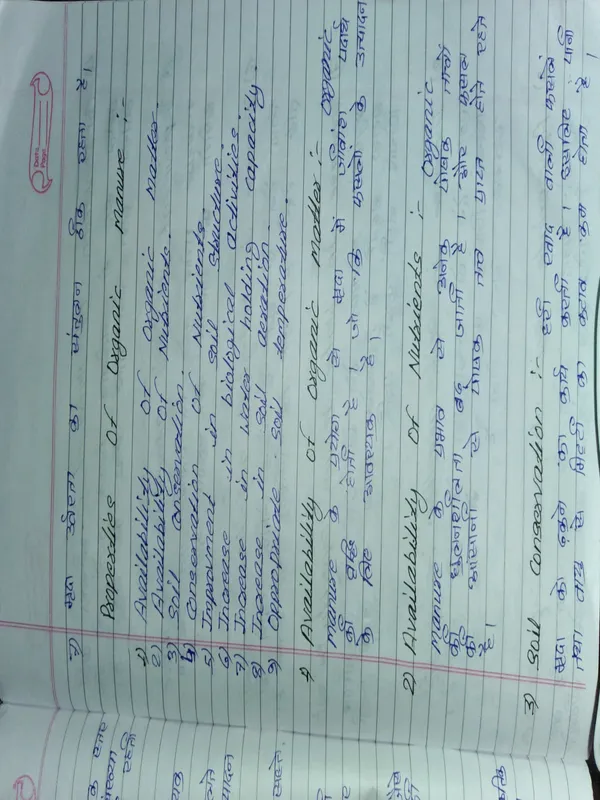 Date
Page
मृदा उर्वरता का संतुलन ठीक रहता है।
Properties Of Organic manure :-
1) Availability of Organic matter.
2) Availability of Nutrients.
3) Soil conservation.
4) Conservation of Nutrients.
5) Improvment in soil structure
6) Increase in biological activities.
7) Increase in water holding capacity.
8) Increase in soil aeration.
9) Oppropriate soil temperature.
1) Availability of organic matter :- Organic
manure के प्रयोग से मृदा में जीवांश पदार्थ
की वृद्धि होती है। जो कि फसलों के उत्पादन
के लिए आवश्यक है।
2) Availability of Nutrients :- Organic
manure के प्रभाव से अनेक पोषक तत्वों
की घुलनशीलता बढ़ जाती है। और फसल
को आसानी से पोषक तत्व प्राप्त होते रहते
है।
3) Soil conservation :- हरी खाद वाली फसलें
मृदा को ढकने का कार्य करती है। इसलिए पानी
तथा वायु से मिट्टी का कटाव कम होता है।